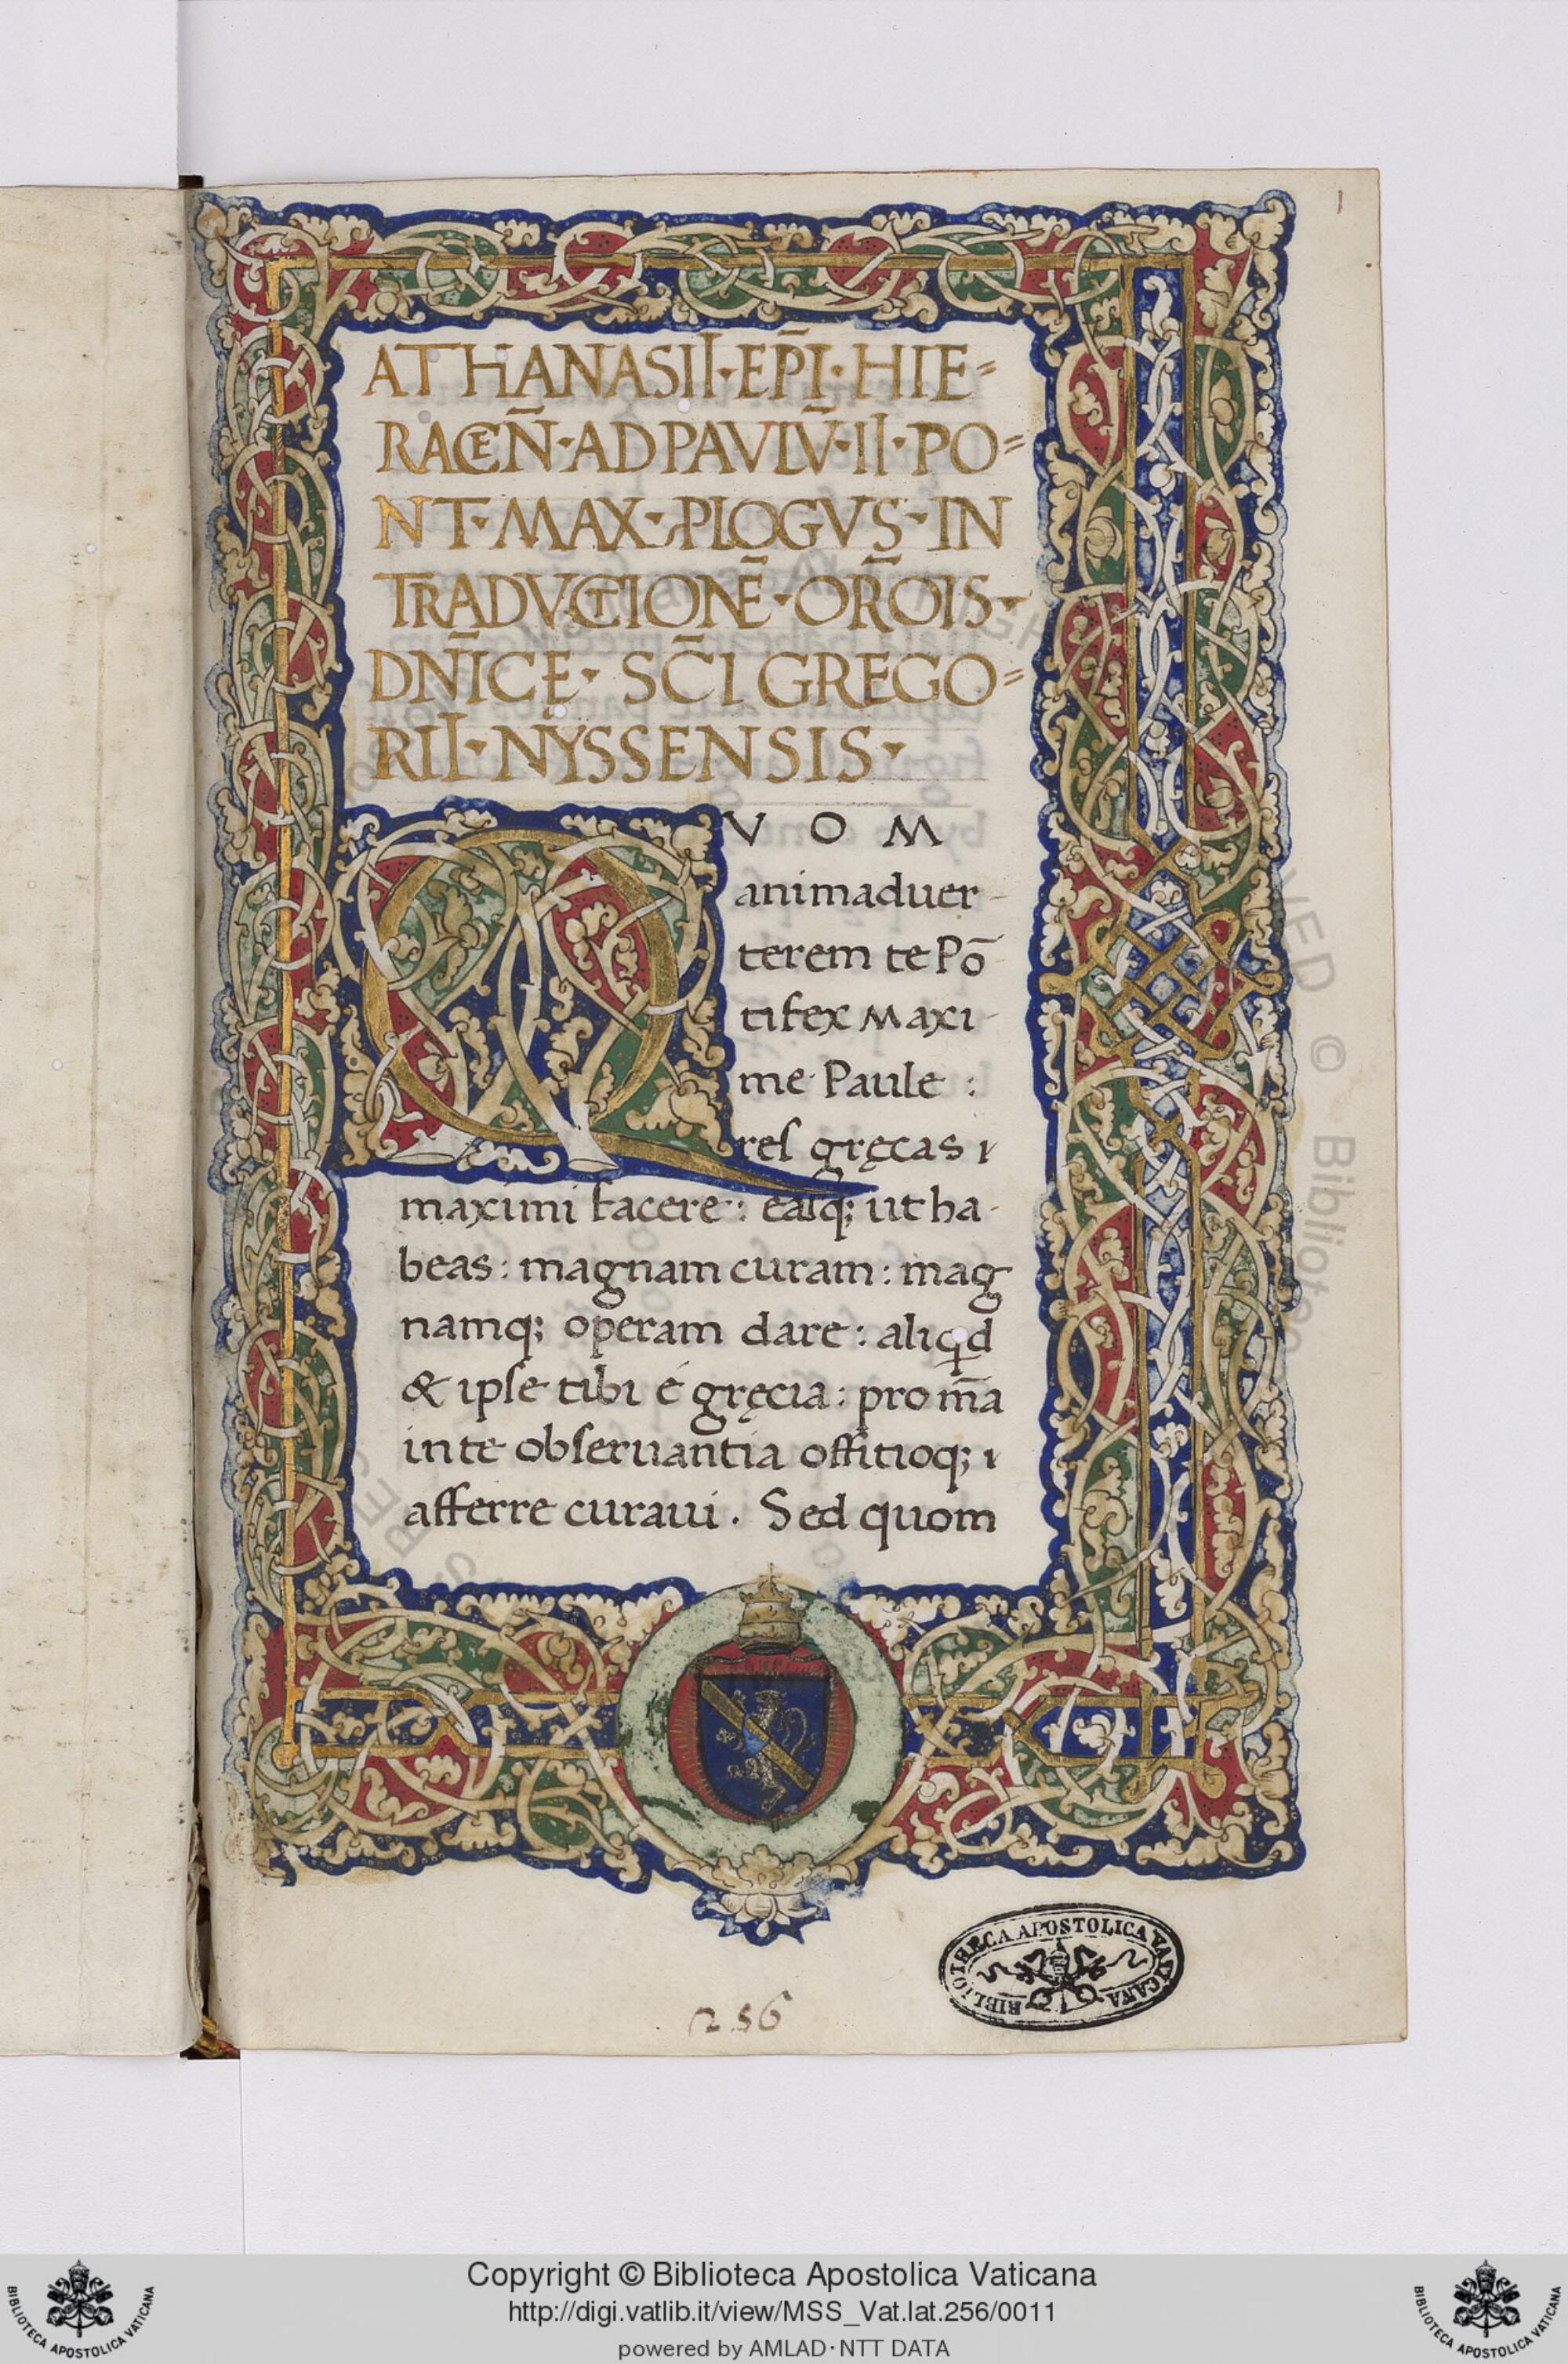 1
ATHANASII·EP̄I·HIE=
RACEN̄·AD PAVLV̄·II·PO=
NT·MAX·PLOGVS·IN
TRADVCTIONĒ·OR̄OIS·
DN̄ICE·SC̄I GREGO=
RII·NYSSENSIS·
QVOM
animaduer-
terem te Pō
tifex Maxi-
me Paule :
res gręcas ı
maximi facere : easq; ut ha-
beas : magnam curam : mag
namq; operam dare : aliqd
& ipse tibi é gręcia : pro m̄a
in te obseruantia offitioq; ı
afferre curaui. Sed quom
BIBLIOTHECA APOSTOLICA VATICANA
256
Copyright © Biblioteca Apostolica Vaticana
http://digi.vatlib.it/view/MSS_Vat.lat.256/0011
powered by AMLAD·NTT DATA
BIBLIOTECA APOSTOLICA VATICANA
BIBLIOTECA APOSTOLICA VATICANA